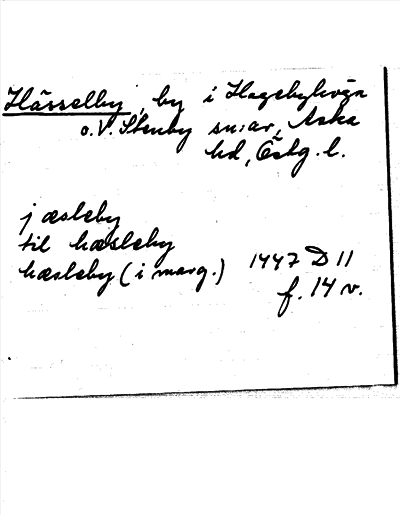 Hässelby, by i Hagebyhöga
o. V. Stenby sn:ar, Aska
hd, Östg. l.
j æsleby
til hæsleby
hæsleby (i marg.) 1447 D 11
f. 14 v.